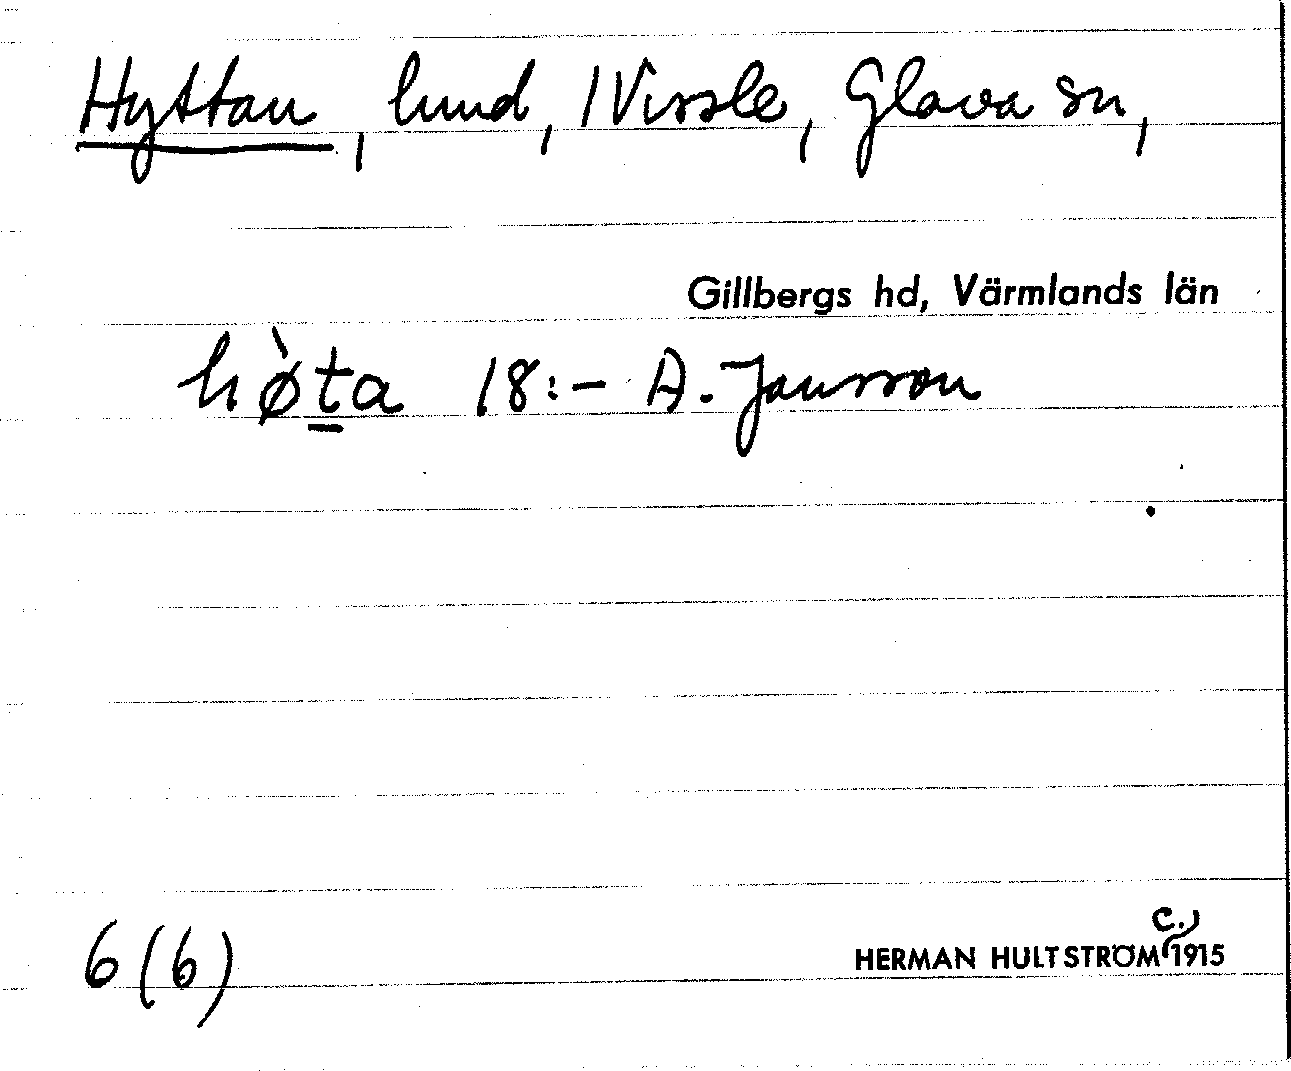 Hyttan, lund, 1 Vissle, Glava sn,
Gillbergs hd, Värmlands län
hø̀ṯa 18:- A. Jansson
6(6)
HERMAN HULTSTRÖM c. 1915